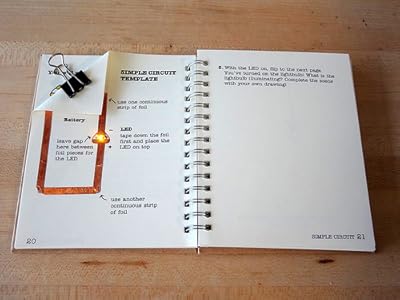 SIMPLE CIRCUIT
TEMPLATE
use one continuous
strip of foil
Battery
LED
tape down the foil
first and place the
LED on top
leave gap
here between
foil pieces for
the LED
use another
continuous strip
of foil
20
5. With the LED on, flip to the next page.
You've turned on the lightbulb! What is the
lightbulb illuminating? Complete the scene
with your own drawing!
SIMPLE CIRCUIT 21